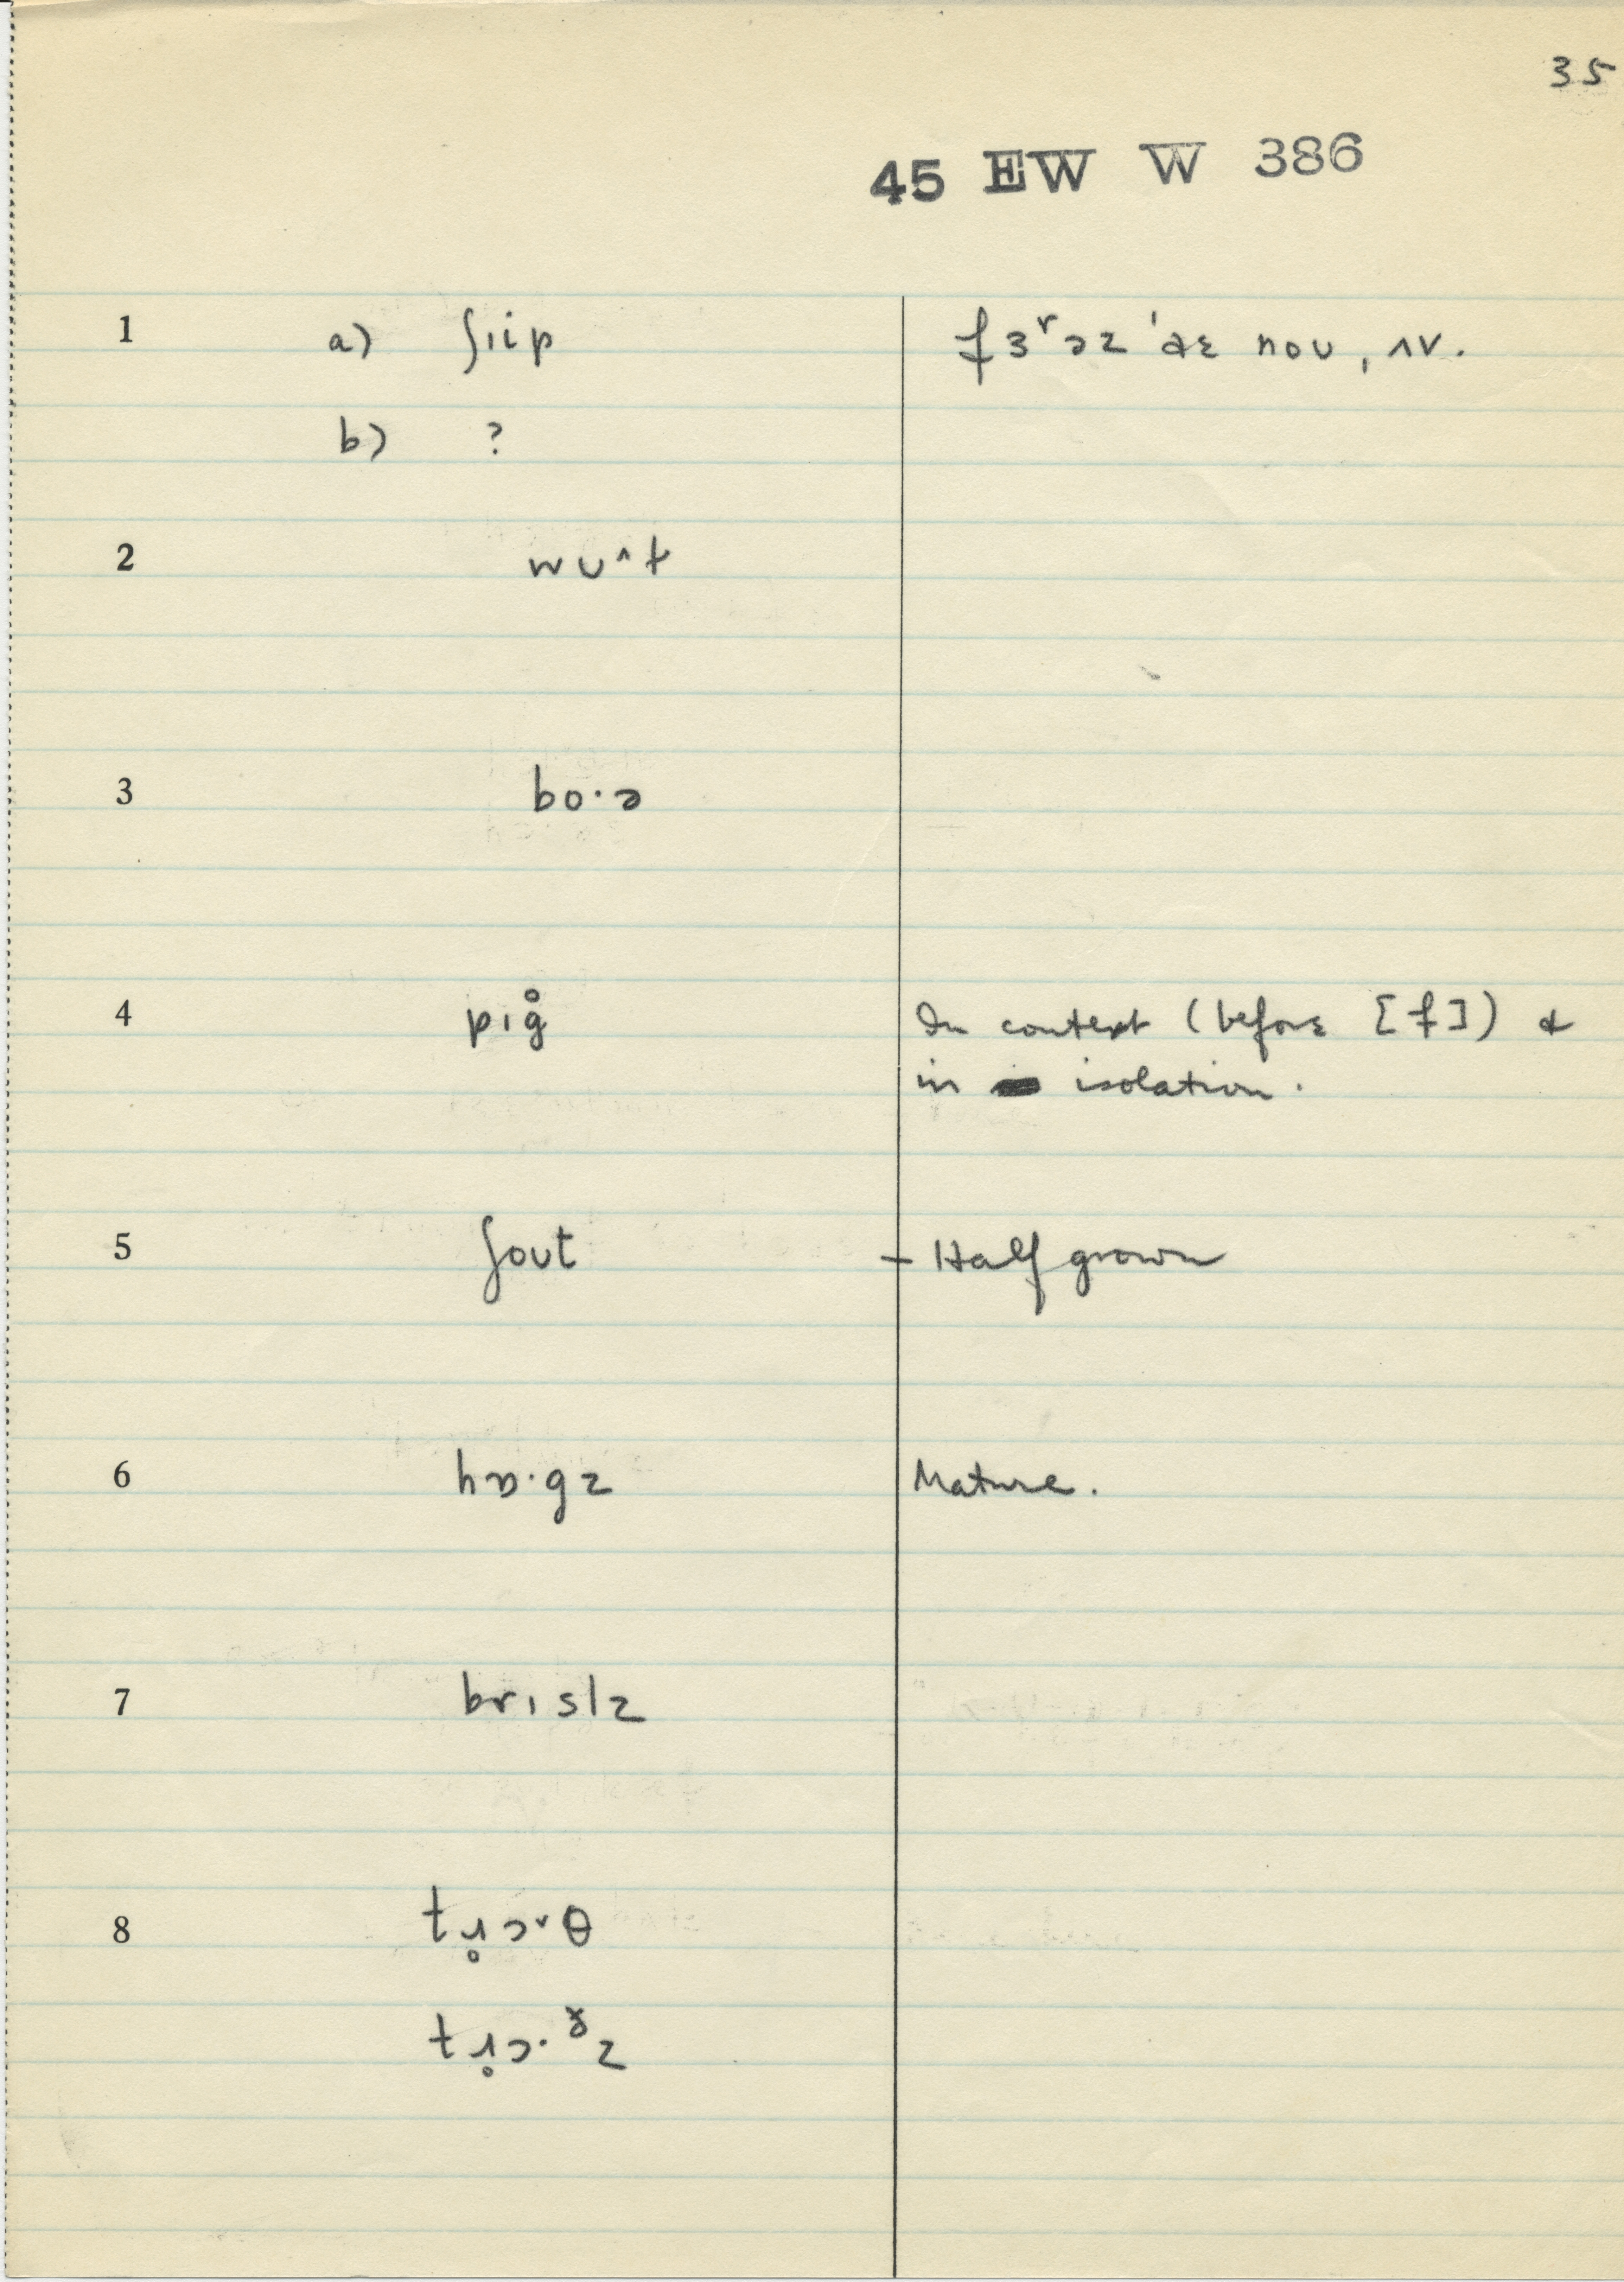 35
45 EW W 386
1 a) ʃɪip fɜʳəz 'aɛ noʊ, ʌv.
b) ?
2 wʊ^t
3 bo·ə
4 pɪg̊ In context (before [f]) &
in isolation.
5 ʃoʊt – Half grown
6 hɒ·gz Mature.
7 brɪslz
8 tɹ̥ɔ˅θ
tɹ̥ɔ·ᵟz